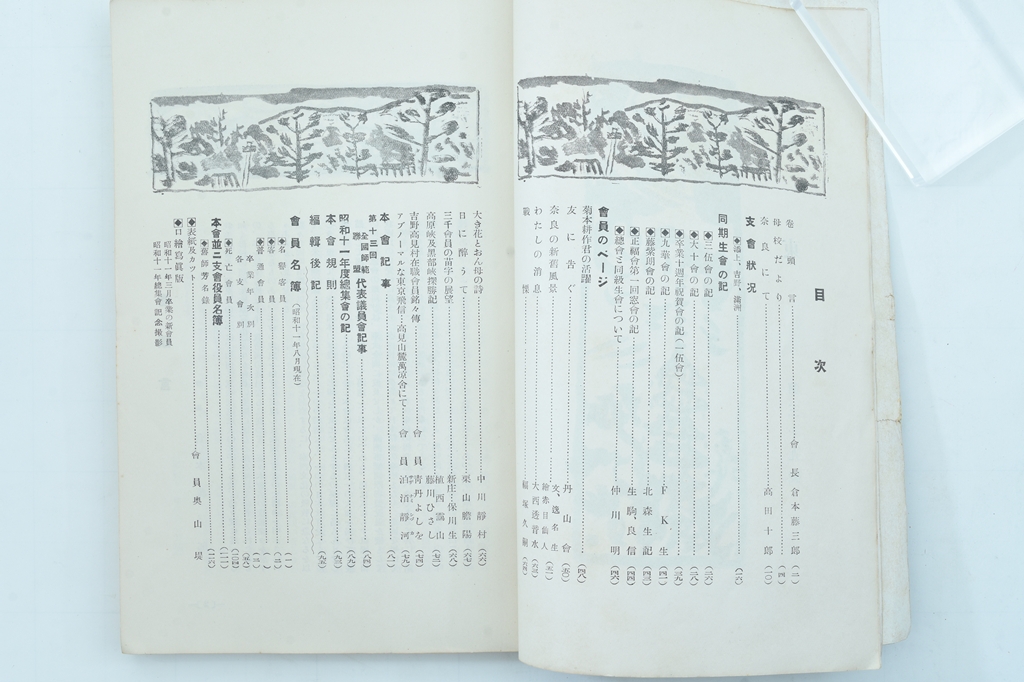 目次
巻頭言 會長 倉本藤三郎 (二)
母校だより (四)
奈良にて 高田十郎 (一〇)
支會狀況
◆通上、吉野、攝洲 (一六)
同期生會の記
◆三伍會の記 (二六)
◆大十會の記 (二八)
◆卒業十週年祝賀會の記(一伍會) (三九)
◆九華會の記 FK生 (四一)
◆藤紫朗會の記 北森生記 (四三)
◆正福會第一回窓會の記 生駒良信 (四四)
◆總會と同級生會について 仲川明 (四六)
會員のページ
菊本耕作君の活躍 (四八)
友に告ぐ 丹山會 (五〇)
奈良の新舊風景 文、逸名生 繪、赤目仙人 (五一)
わたしの消息 大西透普水 (六三)
戰慄 稲塚久嗣 (六四)
大き花とおん母の詩 中川靜村 (六六)
日に醉うて 栗山膽陽 (六七)
三千會員の苗字の展望 新庄 保川生 (六八)
高原峽及黑部峽探勝記 植西靄山 (七二)
吉野高見村在職會員銘々傳 會員 藤川ひさし
アブノーマルな東京飛信 靑丹よしを
高見山麓萬凉舍にて 會員 泊沼靜河
本會記事 (八一)
第十三回全國師範聯盟代表議員會記事 (八四)
昭和十一年度總集會の記 (八九)
本會規則 (九三)
編輯後記 (九五)
會員名簿 (昭和十一年八月現在)
◆名譽客員 (一)
◆客員
◆普通會員
卒業年次別
各支會別
◆死亡會員
◆舊師芳名錄
本會並ニ支會役員名簿
◆表紙及カツト 會員 奥山堤
◆口繪寫眞版 昭和十一年三月卒業の新會員
昭和十一年總集會記念撮影